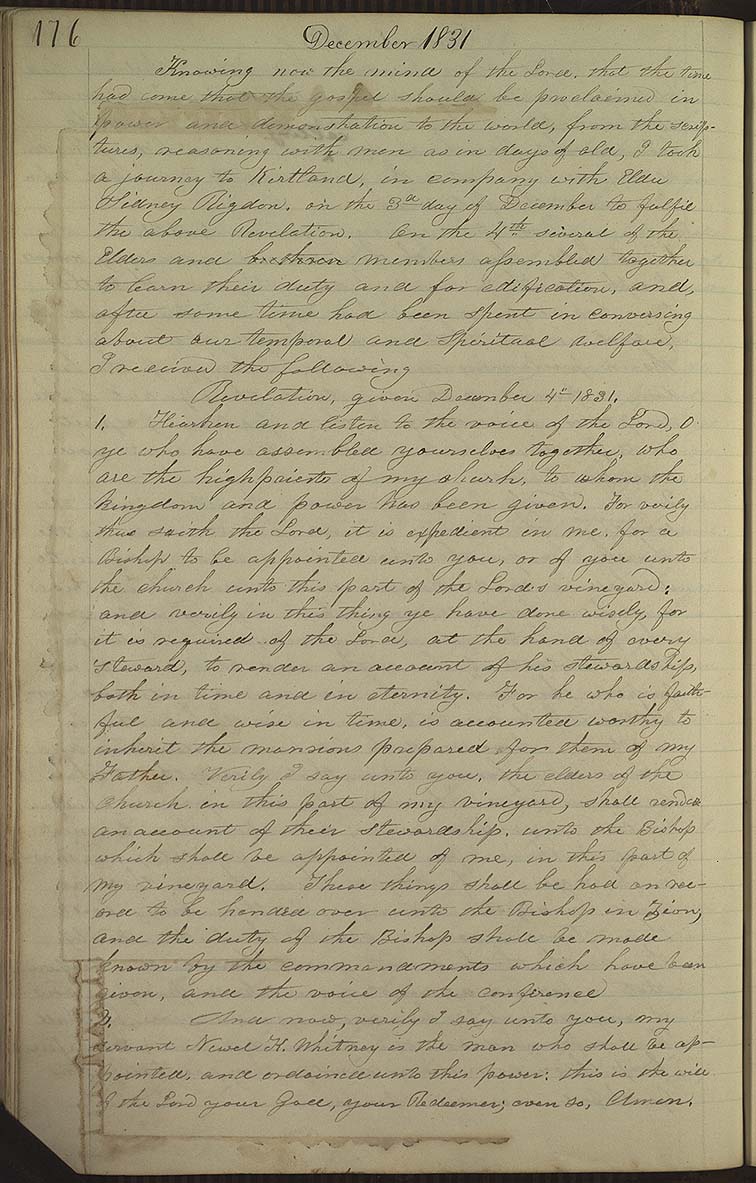 176 December 1831
Knowing now the mind of the Lord, that the time
had come that the gospel should be proclaimed in
power and demonstration to the world, from the scrip-
tures, reasoning with men as in days of old, I took
a journey to Kirtland, in company with Elder
Sidney Rigdon, on the 3d day of December to fulfil
the above Revelation. On the 4th several of the
Elders and brethren members assembled together
to learn their duty and for edification, and,
after some time had been spent in conversing
about our temporal and Spiritual welfare,
I received the following
Revelation, given December 4th 1831.
1. Hearken and listen to the voice of the Lord, O
ye who have assembled yourselves together, who
are the high priests of my church, to whom the
kingdom and power has been given. For verily
thus saith the Lord, it is expedient in me, for a
Bishop to be appointed unto you, or of you unto
the church unto this part of the Lord's vineyard;
and verily in this thing ye have done wisely, for
it is required of the Lord, at the hand of every
steward, to render an account of his stewardship,
both in time and in eternity. For he who is faith-
ful and wise in time, is accounted worthy to
inherit the mansions prepared for them of my
Father. Verily I say unto you, the elders of the
church in this part of my vineyard, shall render
an account of their stewardship, unto the Bishop
which shall be appointed of me, in this part of
my vineyard. These things shall be had on rec-
ord to be handed over unto the Bishop in Zion,
and the duty of the Bishop shall be made
known by the commandments which have been
given, and the voice of the conference
2. And now, verily I say unto you, my
servant Newel K. Whitney is the man who shall be ap-
pointed, and ordained unto this power: this is the will
of the Lord your God, your Redeemer; even so, Amen.